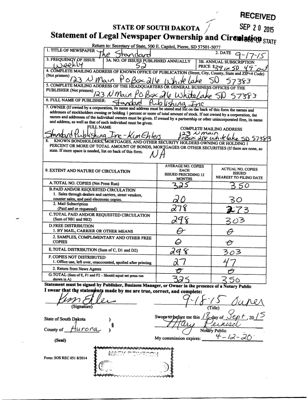 RECEIVED
SEP 20 2015
STATE OF SOUTH DAKOTA
Statement of Legal Newspaper Ownership and Circulation
STATE
Return to: Secretary of State, 500 E. Capitol, Pierre, SD 57501-5077
1. TITLE OF NEWSPAPER The Standard
2. DATE 9-17-15
3. FREQUENCY OF ISSUE Weekly
3A. NO. OF ISSUES PUBLISHED ANNUALLY 52
3B. ANNUAL SUBSCRIPTION PRICE
4. COMPLETE MAILING ADDRESS OF KNOWN OFFICE OF PUBLICATION (Street, City, County, State and ZIP+4 Code) (Not printers)
123 N Main PO Box 216 White Lake SD 57383
5. COMPLETE MAILING ADDRESS OF THE HEADQUARTERS OR GENERAL BUSINESS OFFICES OF THE PUBLISHER (Not printer)
123 N Main PO Box 216 White Lake SD 57383
6. FULL NAME OF PUBLISHER: Standard Publishing Inc
7. OWNER (If owned by a corporation, its name and address must be stated and
FULL NAME
COMPLETE MAILING ADDRESS
Standard Publishing Inc - Kim Ehlers
123 N Main
PO Box 216 White Lake SD 57383
8. KNOWN BONDHOLDERS, MORTGAGEES, AND OTHER SECURITY HOLDERS OWNING OR HOLDING 1 PERCENT OR MORE OF TOTAL AMOUNT OF BONDS, MORTGAGES OR OTHER SECURITIES (If there are none, so state. If more space is needed, list on back of this form.
NA
9. EXTENT AND NATURE OF CIRCULATION
AVERAGE NO. COPIES EACH ISSUED PRECEDING 12 MONTHS
ACTUAL NO. COPIES ISSUED NEAREST TO FILING DATE
A. TOTAL NO. COPIES (Net Press Run) 325 350
B. PAID AND/OR REQUESTED CIRCULATION
1. Sales through dealers and carriers, street vendors, counter sales, and paid electronic copies. 20 30
2. Mail Subscription (Paid and or requested) 278 273
C. TOTAL PAID AND/OR REQUESTED CIRCULATION (Sum of 9B1 and 9B2) 298 303
D. FREE DISTRIBUTION
1. BY MAIL, CARRIER OR OTHER MEANS
2. SAMPLES, COMPLIMENTARY AND OTHER FREE COPIES
E. TOTAL DISTRIBUTION (Sum of C, D1 and D2) 298 303
F. COPIES NOT DISTRIBUTED
1. Office use, left over, unaccounted, spoiled after printing 27 47
2. Return from News Agents
G. TOTAL (Sum of E, F1 and F2 - Should equal net press run shown in A) 325 350
Statement must be signed by Publisher, Business Manager, or Owner in the presence of a Notary Public
I swear that the statements made by me are true, correct, and complete:
Kim Ehlers
9-18-15 Owner
(Signature)
(Title)
State of South Dakota )
County of Aurora )
Sworn to before me this day of Sept, 2015
Mary
Notary Public
(Seal)
My commission expires: 4-12-20
Form: SOS REC 051 8/2014